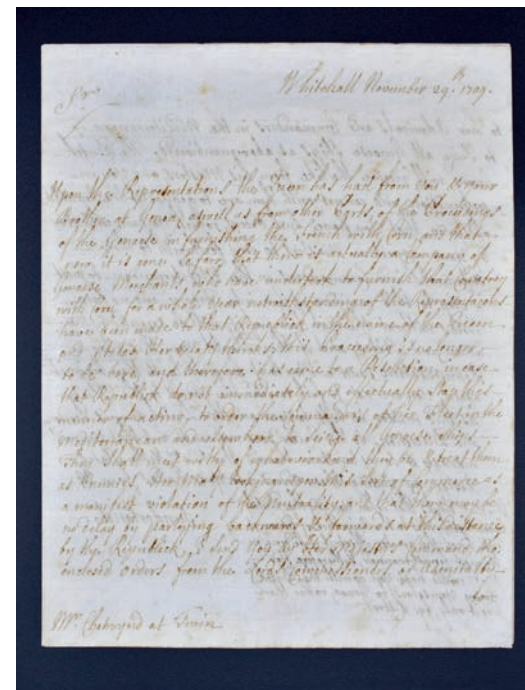 Whitehall November 29th. 1709.
Sr
Upon the Representations the Queen has had from
at Genoa, as well as from other Parts, of the Proceedings
of the Genoese in furnishing the French with Corn, and that
now it is come so far, that there is actually a Company of
Genoese Merchants, who have undertook to furnish that Country
with Corn for a whole Year notwithstanding of the Representations
have been made to that Republick in the name of the Queen
and Her Majty thinks this is no longer
to be born, and therefore is come to a Resolution, in case
that Republick do not immediately and effectually stop this
manner of acting, to order the Commanders of Fleet in the
Mediterranean and elsewhere to seize all Genoese Ships
They shall meet with, of what and thus to treat them
as Enemies Her Majty looking upon this sort of Commerce as
a manifest violation of the Neutrality, and that there may be
no delay by backwards & forwards
by the Republick, I send You by Her Majtys command the
enclosed Orders from the Lords Commissioners of the Admiralty
for
Mr. Chetwynd at Turin